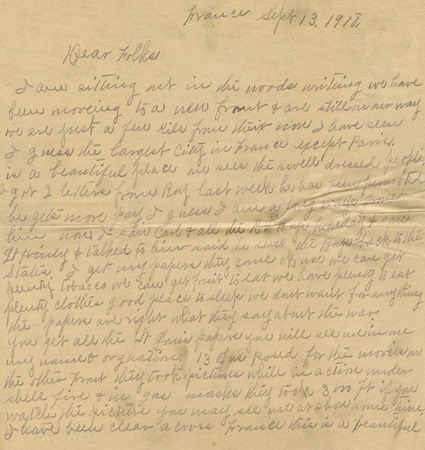 France Sept 13. 1918.
Dear Folks
I am sitting out in the woods writing we have
been moveing to a new front & are still on our way
we are just a few Kilo from their now I have seen
I guess the largest City in France except Paris.
is a beautiful place one sees the swell dressed people,
I got 2 letters from Ray last week he has been
he gets more pay I guess I am a long ways from
him now I saw Carl & all the
& talked to him said he sent the back to the
States. I get my papers they come ok now we can get
plenty Tobacco we can get fruit to eat we have plenty to eat
plenty clothes good place to sleep we dont want for anything
the papers are right what they say about the war.
you get all the papers you will see me in one
my name & 13 posed for the movies on
the other front they took pictures while in action under
shell fire & in gas masks they took 3,000 ft if you
watch the picture you may see me at show some time,
I have been clear across France this is a beautiful